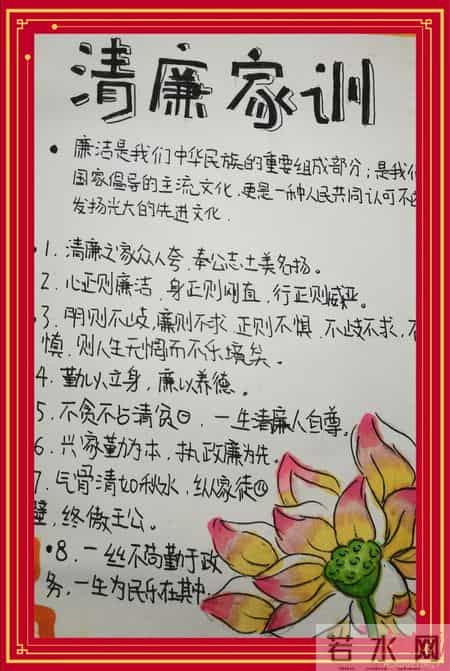 清廉家训
• 廉洁是我们中华民族的重要组成部分;是我们
国家倡导的主流文化,更是一种人民共同认可不
发扬光大的先进文化.
1、清廉之家众人夸、奉公志士美名扬。
2、心正则廉洁、身正则刚直,行正则威严。
3、明则不歧,廉则不求 正则不惧、不歧不求,不
慎、则人生无惆而不乐境矣。
4、勤以立身,廉以养德。
5、不贪不占清贫日、一生清廉人自尊。
6、兴家勤为本,执政廉为先。
7、气骨清如秋水,纵家徒四
壁,终傲王公。
•8、一丝不苟勤于政
务,一生为民乐在其中.
若水网